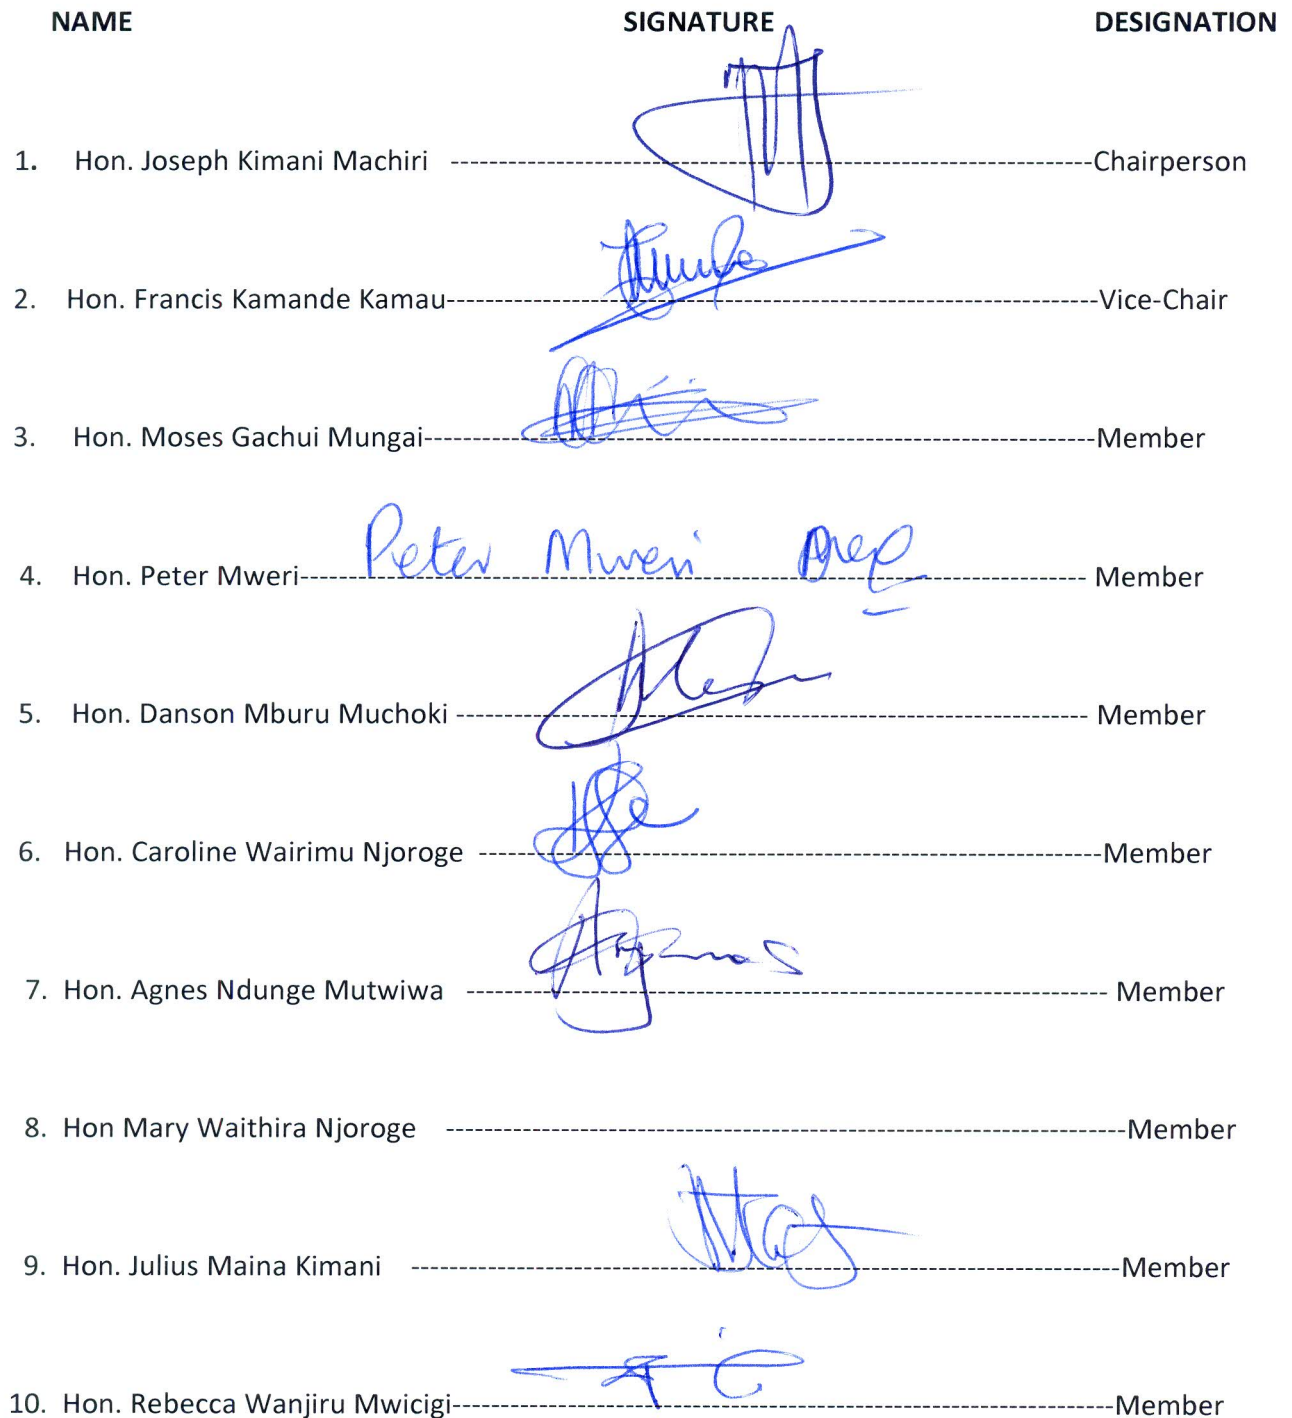 NAME SIGNATURE DESIGNATION
1. Hon. Joseph Kimani Machiri ---Chairperson
2. Hon. Francis Kamande Kamau---Vice-Chair
3. Hon. Moses Gachui Mungai---Member
4. Hon. Peter Mweri---Peter Mweri--- Member
5. Hon. Danson Mburu Muchoki --- Member
6. Hon. Caroline Wairimu Njoroge ---Member
7. Hon. Agnes Ndunge Mutwiwa --- Member
8. Hon Mary Waithira Njoroge ---Member
9. Hon. Julius Maina Kimani ---Member
10. Hon. Rebecca Wanjiru Mwicigi---Member